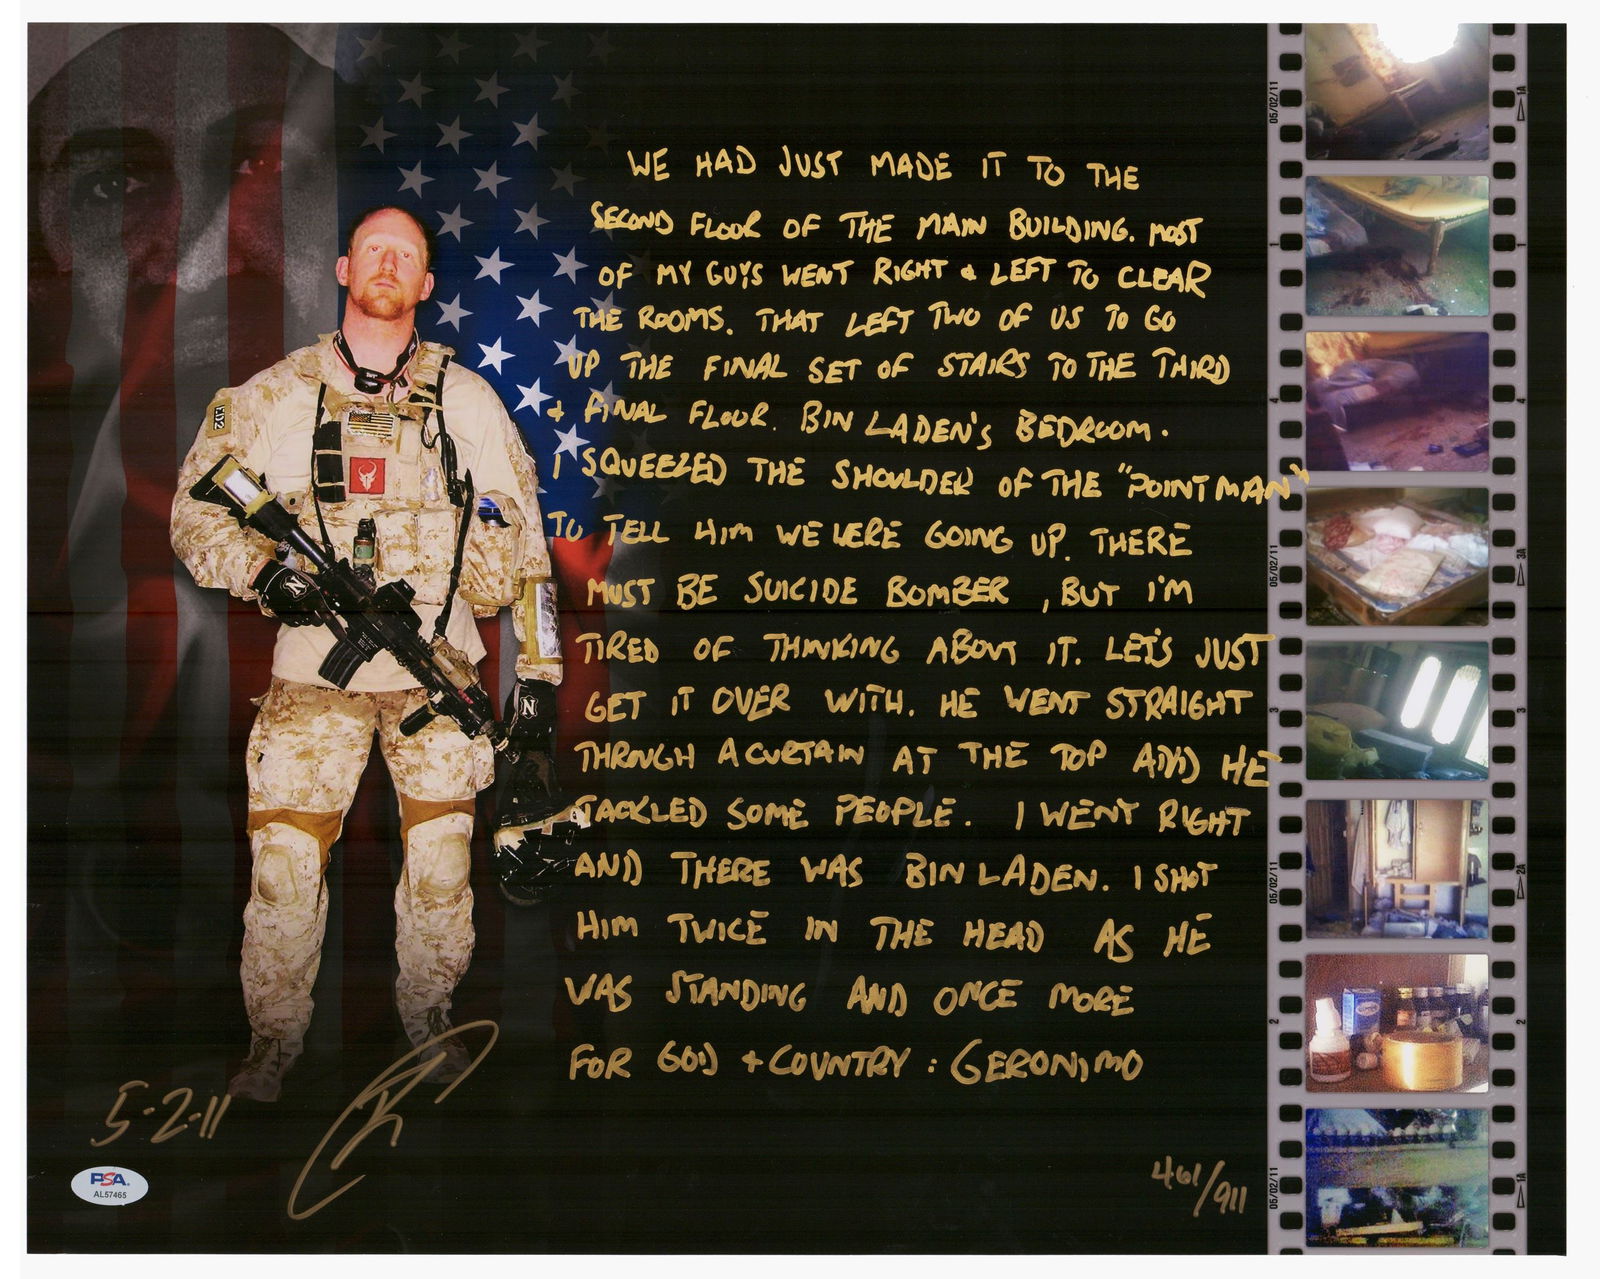 WE HAD JUST MADE IT TO THE
SECOND FLOOR OF THE MAIN BUILDING. MOST
OF MY GUYS WENT RIGHT & LEFT TO CLEAR
THE ROOMS. THAT LEFT TWO OF US TO GO
UP THE FINAL SET OF STAIRS TO THE THIRD
& FINAL FLOOR. BIN LADEN'S BEDROOM.
I SQUEEZED THE SHOULDER OF THE "POINT MAN"
TO TELL HIM WE WERE GOING UP. THERE
MUST BE SUICIDE BOMBER, BUT I'M
TIRED OF THINKING ABOUT IT. LET'S JUST
GET IT OVER WITH. HE WENT STRAIGHT
THROUGH A CURTAIN AT THE TOP AND HE
TACKLED SOME PEOPLE. I WENT RIGHT
AND THERE WAS BIN LADEN. I SHOT
HIM TWICE IN THE HEAD AS HE
WAS STANDING AND ONCE MORE
FOR GOD & COUNTRY: GERONIMO
5-2-11
PSA
AL57465
461/911
N
N
05/02/11
1A
1
1
4
4
05/02/11
3A
3
3
05/02/11
2A
2
2
05/02/11
1A